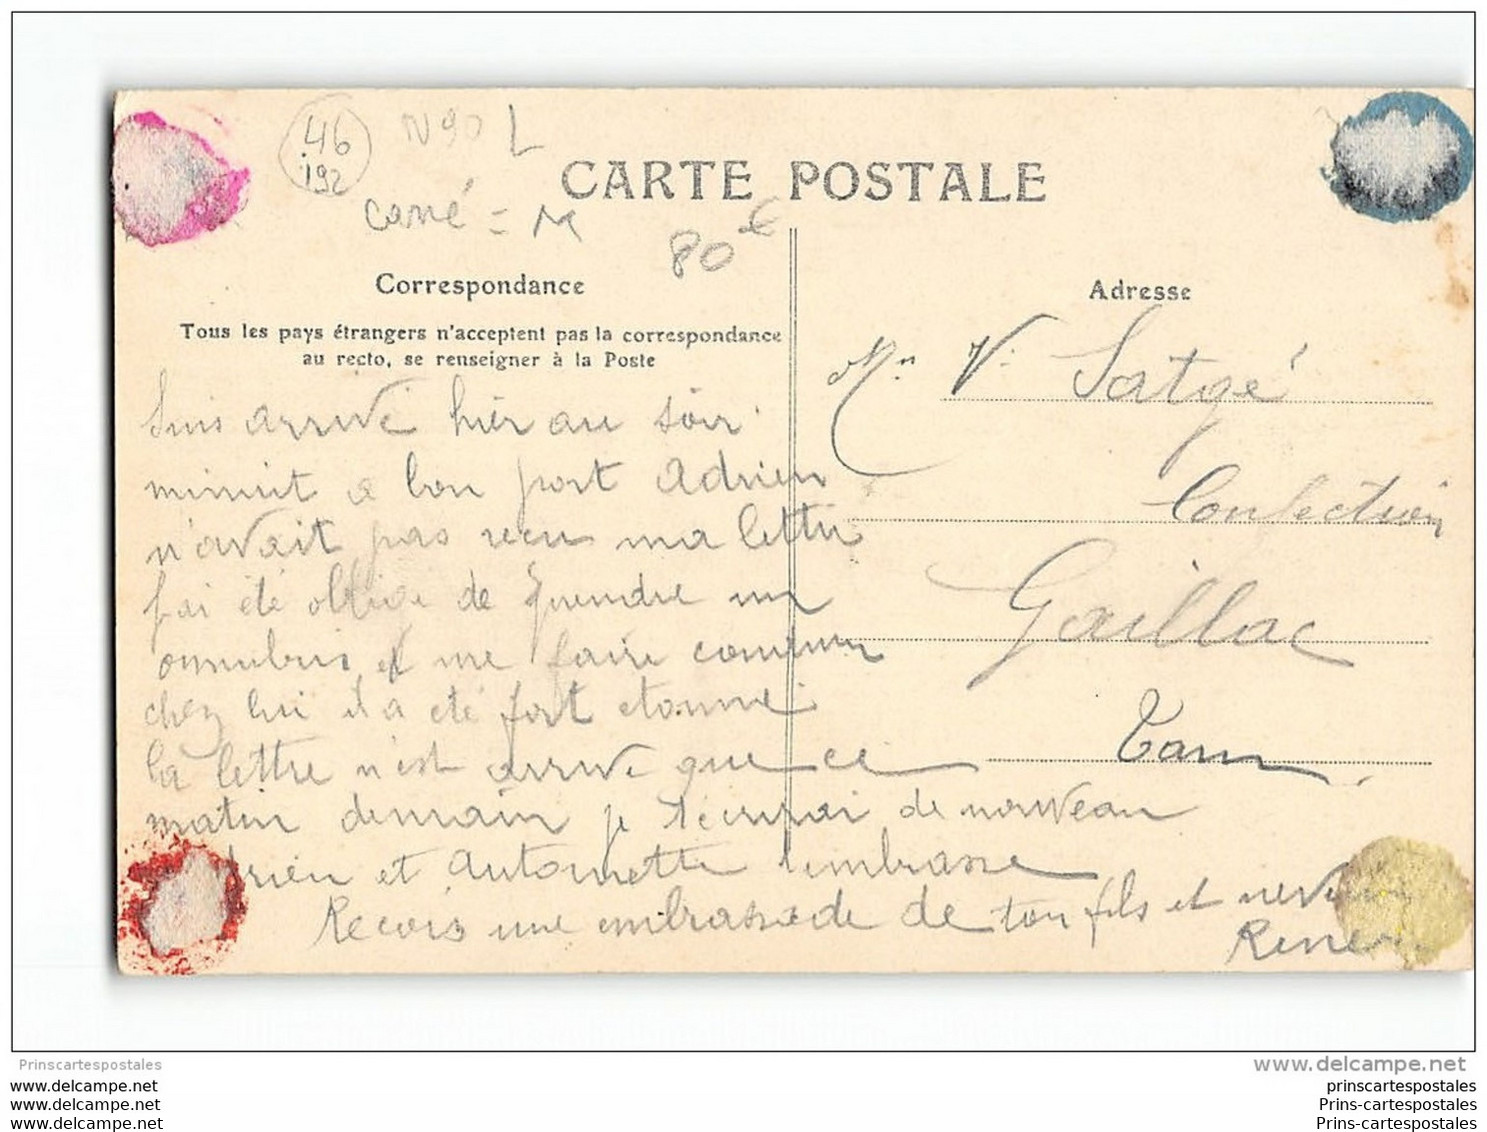 46
192
N90 L
CARTE POSTALE
Carré = M
80 €
Correspondance
Tous les pays étrangers n'acceptent pas la correspondance
au recto, se renseigner à la Poste
Suis arrivé hier au soir
minuit a bon port Adrien
n'avait pas recu ma lettre
j'ai été oblige de prendre un
omnibus et me faire conduire
chez lui il a été fort etonné
la lettre n'est arrivé que ce
matin demain je t'ecrirai de nouveau
et Antoinette t'embrasse
Recois une embrassade de ton fils et neveu
René
Adresse
Mr V. Satgé
Confection
Gaillac
Tarn
Prinscartespostales
www.delcampe.net
www.delcampe.net
www.delcampe.net
www.delcampe.net
prinscartespostales
Prins-cartespostales
Prins-cartespostales